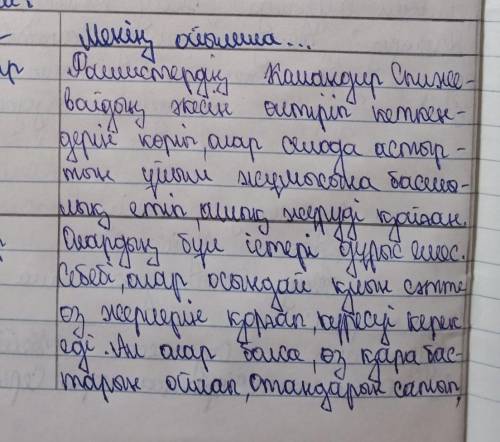 Менің ойымша...
Фашистердің Командир Спиже-
вайдың әкесін өлтіріп кеткен-
дерін көріп, олар селода астыр-
тын ұйым жұмысына басшы-
лық етіп, ашық жүруді қойған.
Олардың бұл істері дұрыс емес.
Себебі, олар осындай қиын сәтте
өз жерлерін қорғап, күресуі керек
еді. Ал олар болса, өз қара бас-
тарын ойлап, отандарын сатып,